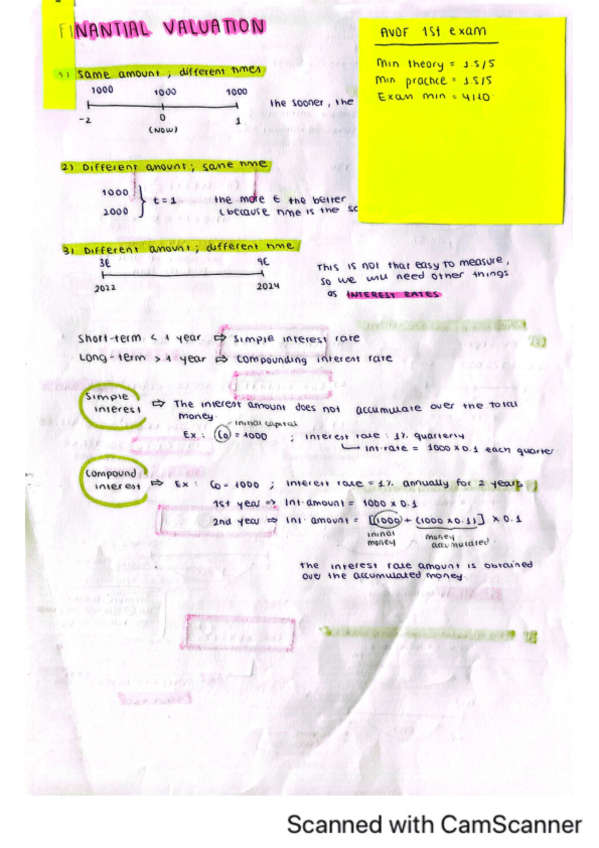 FINANTIAL VALUATION
AVOF 1st exam
Min theory = 1.5/5
Min practice = 1.5/5
Exam min = 4/10
1) Same amount ; different times
1000 1000 1000
-2 0 1
(NOW)
the sooner, the
2) Different amount ; same time
1000
2000
t = 1
the more € the better
(because time is the
3) Different amount ; different time
3€ 9€
2022 2024
This is not that easy to measure,
so we will need other things
as INTEREST RATES
Short-term < 1 year ⇨ simple interest rate
Long-term > 1 year ⇨ compounding interest rate
Simple
interest
⇨ The interest amount does not accumulate over the total
money.
initial capital
Ex: C0 = 1000 ; interest rate : 1% quarterly
int rate = 1000 x 0.1 each quarter
Compound
interest
⇨ Ex : C0 = 1000 ; interest rate = 1% annually for 2 years
1st year ⇨ Int. amount = 1000 x 0.1
2nd year ⇨ Int. amount = [(1000) + (1000 x 0.1)] x 0.1
initial
money
money
accumulated
the interest rate amount is obtained
over the accumulated money.
Scanned with CamScanner